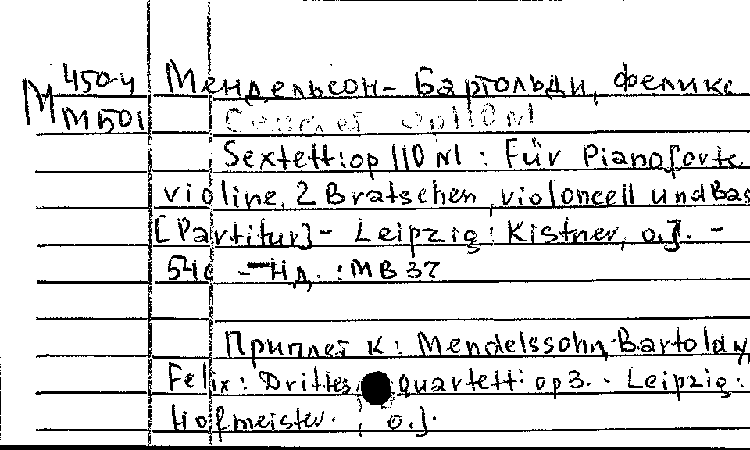 450-4 Мендельсон-Бартольди, Феликс
М М501 Секстет Op 110 N1
Sextett: op 110 N1 : Für Pianoforte
violine, 2 Bratschen, violoncell und Bas
[Partitur] - Leipzig: Kistner, o.J. -
54c - Нд. : МВ 37
Приплет к: Mendelssohn-Bartoldy,
Felix: Drittes quartett: op 3. - Leipzig:
Hofmeister. , o.J.